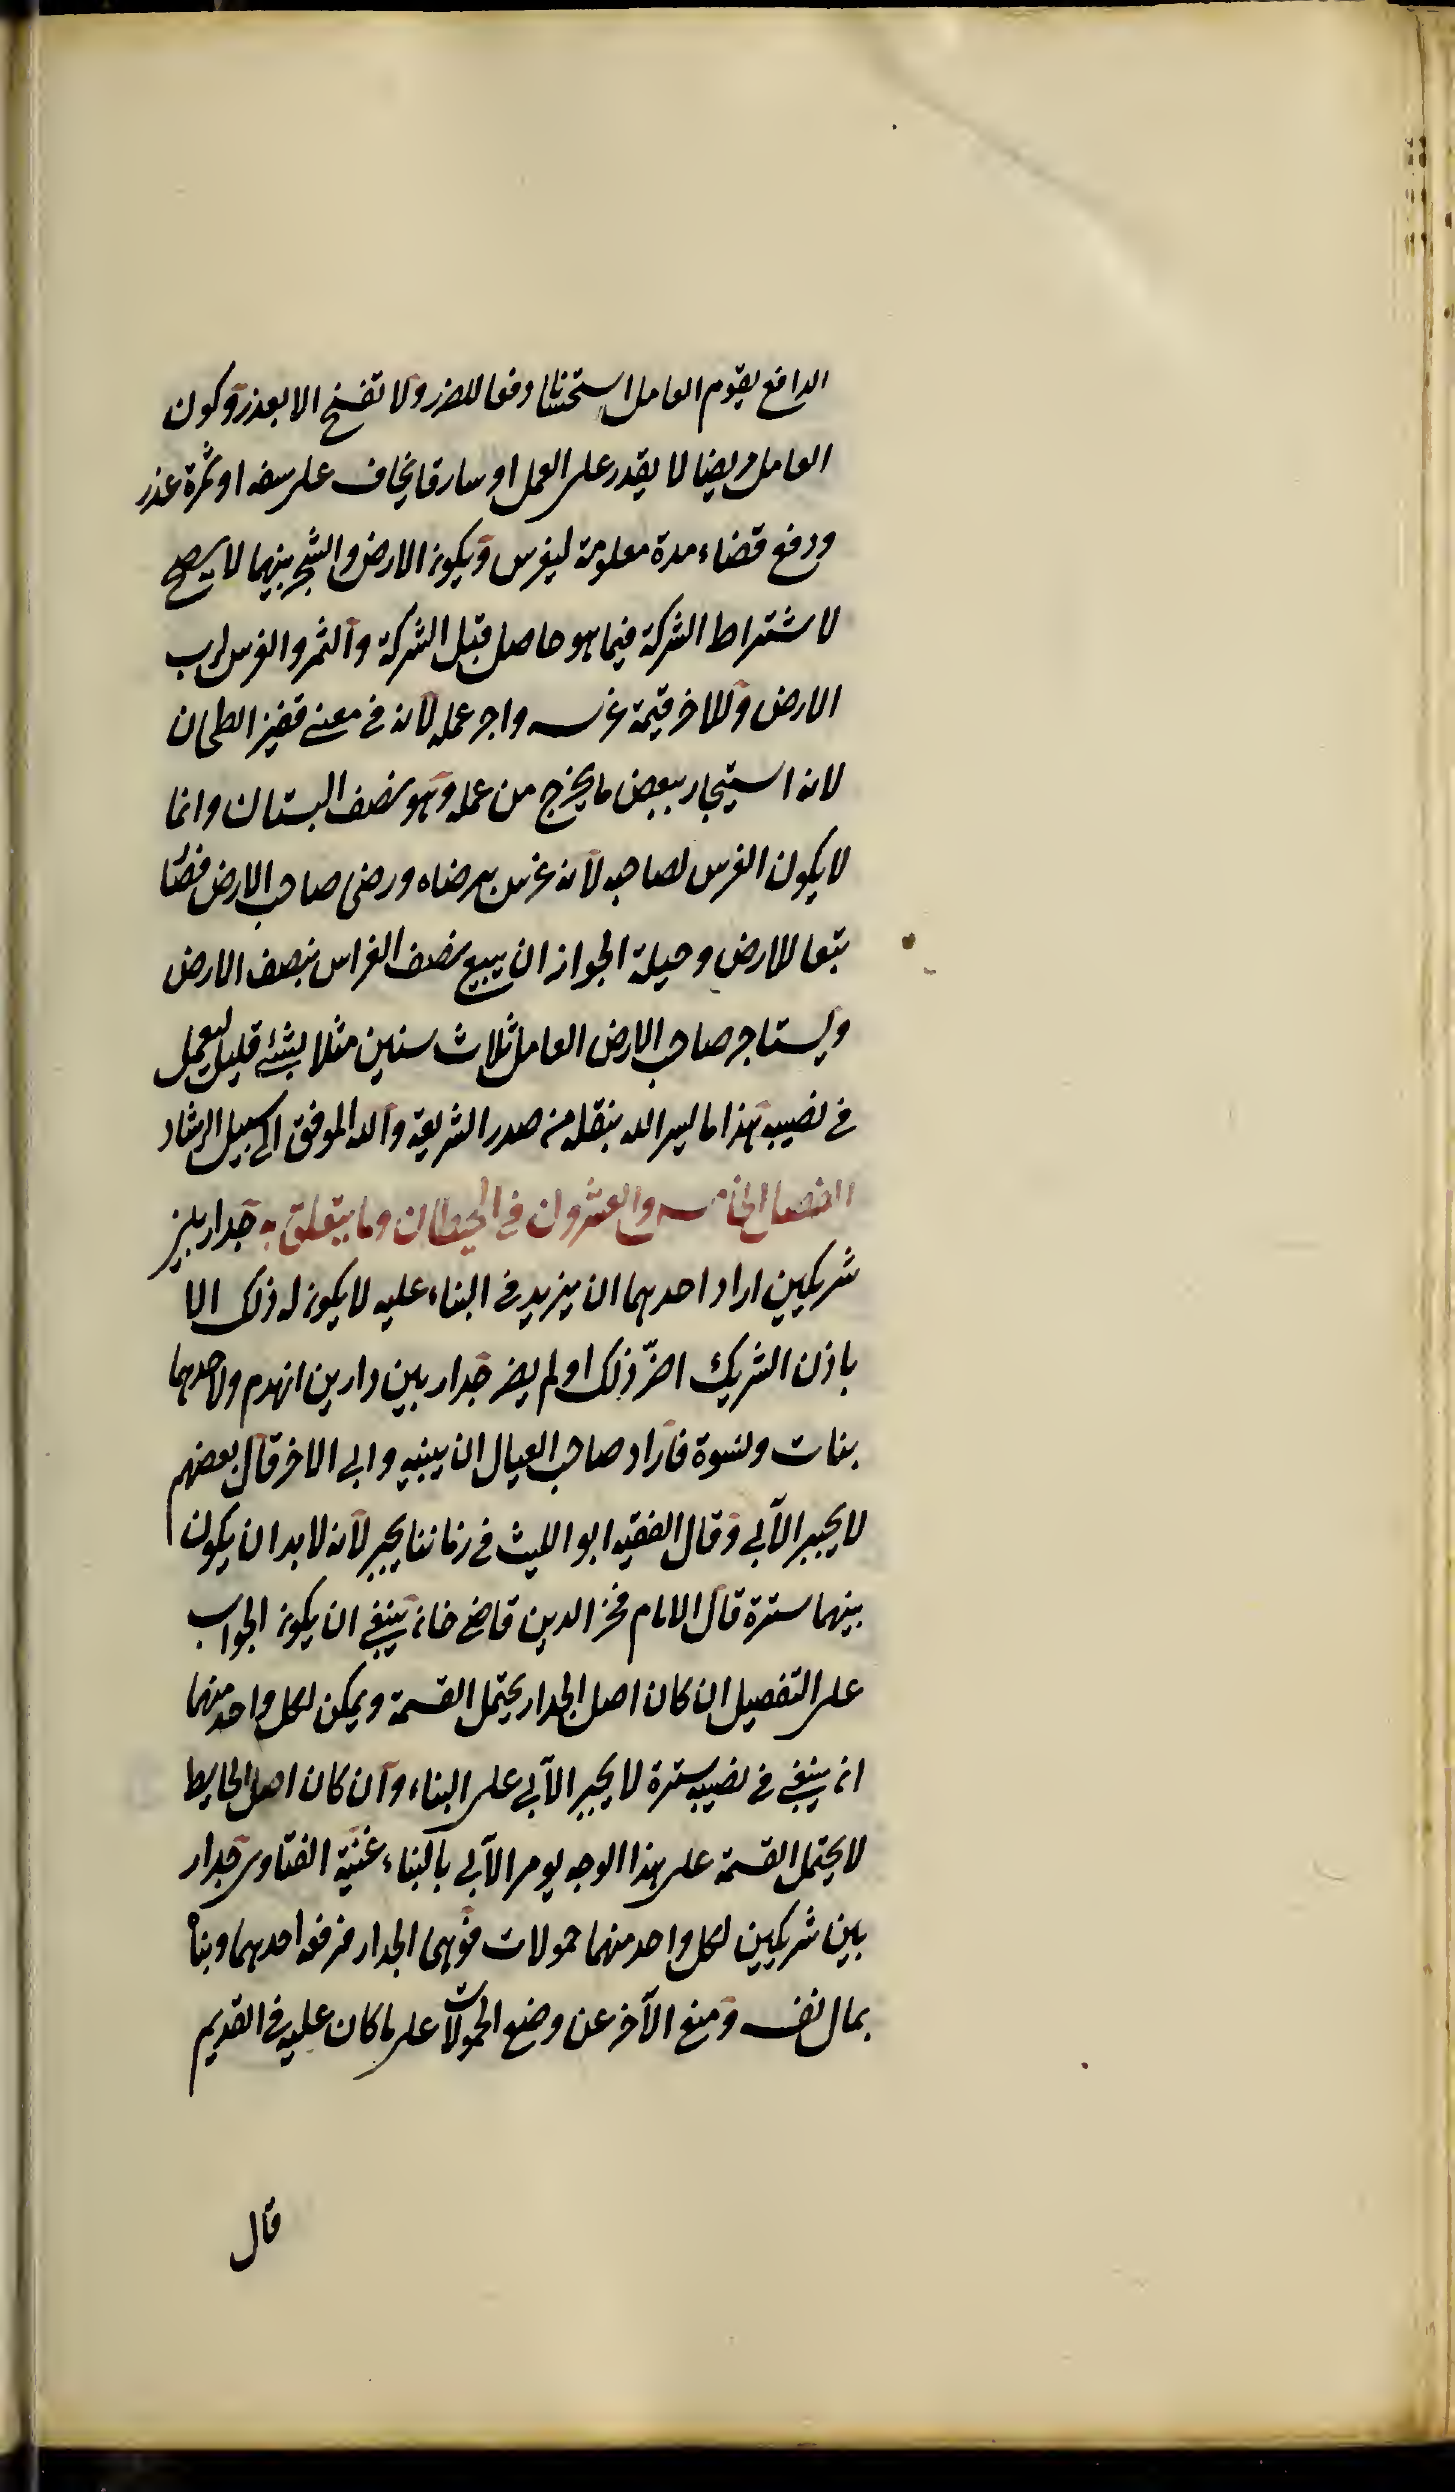 الدافع يقوم العامل استحسانا دفعا للضرر ولا تفسخ الا بعذر وكون
العامل مريضا لا يقدر على العمل او سارقا يخاف على سعفه او ثمره عذر
ودفع فضاء مدة معلومة ليغرس ويكون الارض والشجر بينهما لا يصح
لاشتراط الشركة فيما هو حاصل قبل الشركة والثمر والغرس لرب
الارض وللاخر قيمة غرسه واجر عمله لانه في معنى قفيز الطحان
لانه استيجار ببعض ما يخرج من عمله وهو نصف البستان وانما
لا يكون الغرس لصاحبه لانه غرس برضاه ورضى صاحب الارض فصار
تبعا للارض وحيلة الجواز ان يبيع نصف الغراس بنصف الارض
ويستاجر صاحب الارض العامل ثلاث سنين مثلا بشئ قليل ليعمل
في نصيبه هذا ما يسر الله بنقله من صدر الشريعة والله الموفق الى سبيل الرشاد
الفصل الخامس والعشرون في الحيطان وما يتعلق به جدار بين
شريكين اراد احدهما ان يزيد في البناء عليه لا يكون له ذلك الا
باذن الشريك اضرّ ذلك او لم يضر جدار بين دارين انهدم ولاحدهما
بنات ونسوة فاراد صاحب العيال ان يبنيه وابى الاخر قال بعضهم
لا يجبر الآبي وقال الفقيه ابو الليث في زماننا يجبر لانه لا بد ان يكون
بينهما سترة قال الامام فخر الدين قاضي خان ينبغي ان يكون الجواب
على التفصيل ان كان اصل الجدار يحتمل القسمة ويمكن لكل واحد منهما
ان يبني في نصيبه سترة لا يجبر الآبي على البناء وان كان اصل الحايط
لا يحتمل القسمة على هذا الوجه يومر الآبي بالبناء غنية الفتاوى جدار
بين شريكين لكل واحد منهما حمولات فوهى الجدار فرفعه احدهما وبناه
بمال نفسه ومنع الآخر عن وضع الحمولات على ما كان عليه في القديم
قال